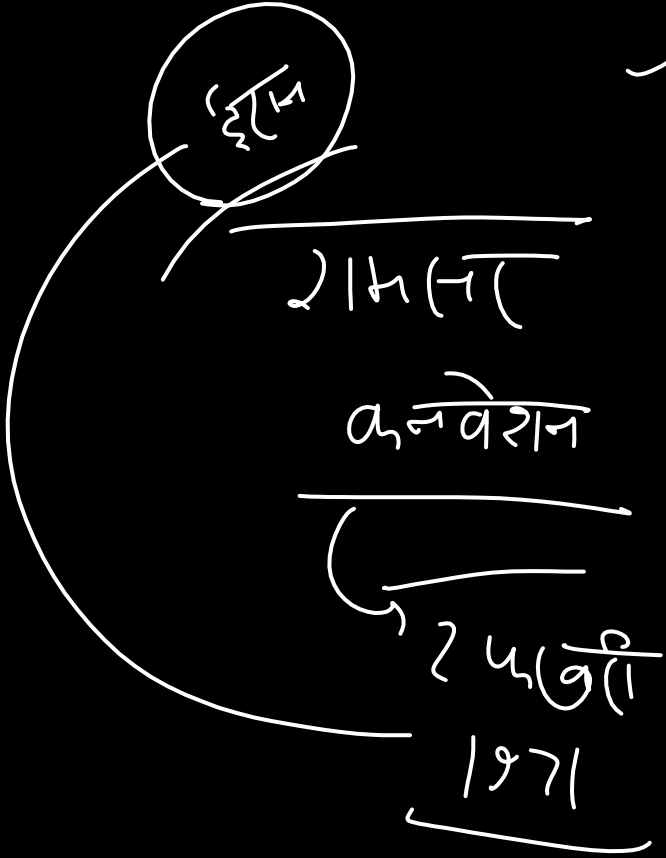 ईरान
रामसर
कनवेशन
2 फरवरी
1971